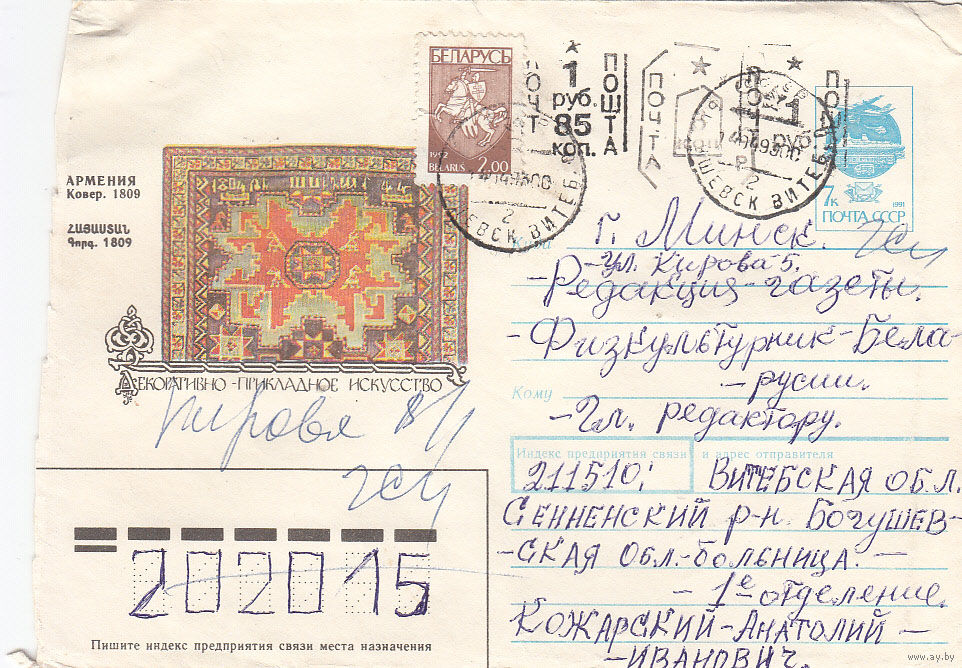 БЕЛАРУСЬ
1992
BELARUS 2.00
ПОЧТА
1
руб.
85
коп.
ПОШТА
ПОЧТА
1 руб
2
БОГУШЕВСК ВИТЕБ.
2
7к
1991
ПОЧТА СССР
АРМЕНИЯ
Ковер. 1809
ՀԱՅԱՍՏԱՆ
Գորգ. 1809
ДЕКОРАТИВНО-ПРИКЛАДНОЕ ИСКУССТВО
Куда
г. Минск.
-ул. Кирова 5.
-Редакция-газеты.
-Физкультурник-Бела-
-русии.
Кому
-Гл. редактору.
Кирова 8/1
гси
гси
Индекс предприятия связи и адрес отправителя
211510; ВИТЕБСКАЯ ОБ.Л.
СЕННЕНСКИЙ Р-Н. БОГУШЕВ-
-СКАЯ ОБЛ.-БОЛЬНИЦА. —
- 1е отделение.
КОЖАРСКИЙ-АНАТОЛИЙ —
-ИВАНОВИЧ.
202015
Пишите индекс предприятия связи места назначения
www.ay.by